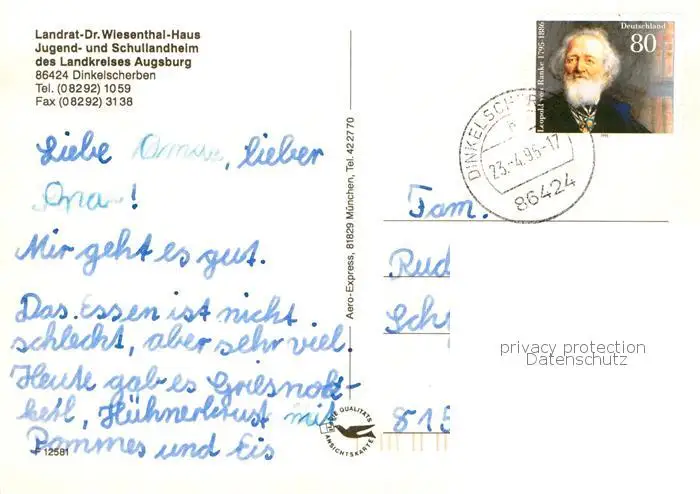 Landrat-Dr. Wiesenthal-Haus
Jugend- und Schullandheim
des Landkreises Augsburg
86424 Dinkelscherben
Tel. (08292) 1059
Fax (08292) 3138
Liebe Oma, lieber
Opa!
Mir geht es gut.
Das Essen ist nicht
schlecht, aber sehr viel.
Heute gab es Griesnok-
kerl, Hühnerbrust mit
Pommes und Eis
F 12581
Aero-Express, 81829 München, Tel. 42 27 70
DIE QUALITÄTS
ANSICHTSKARTE
Leopold von Ranke 1795-1886
Deutschland
80
23.-4.95-17
86424
Fam.
Rud
Sch
815
privacy protection
Datenschutz